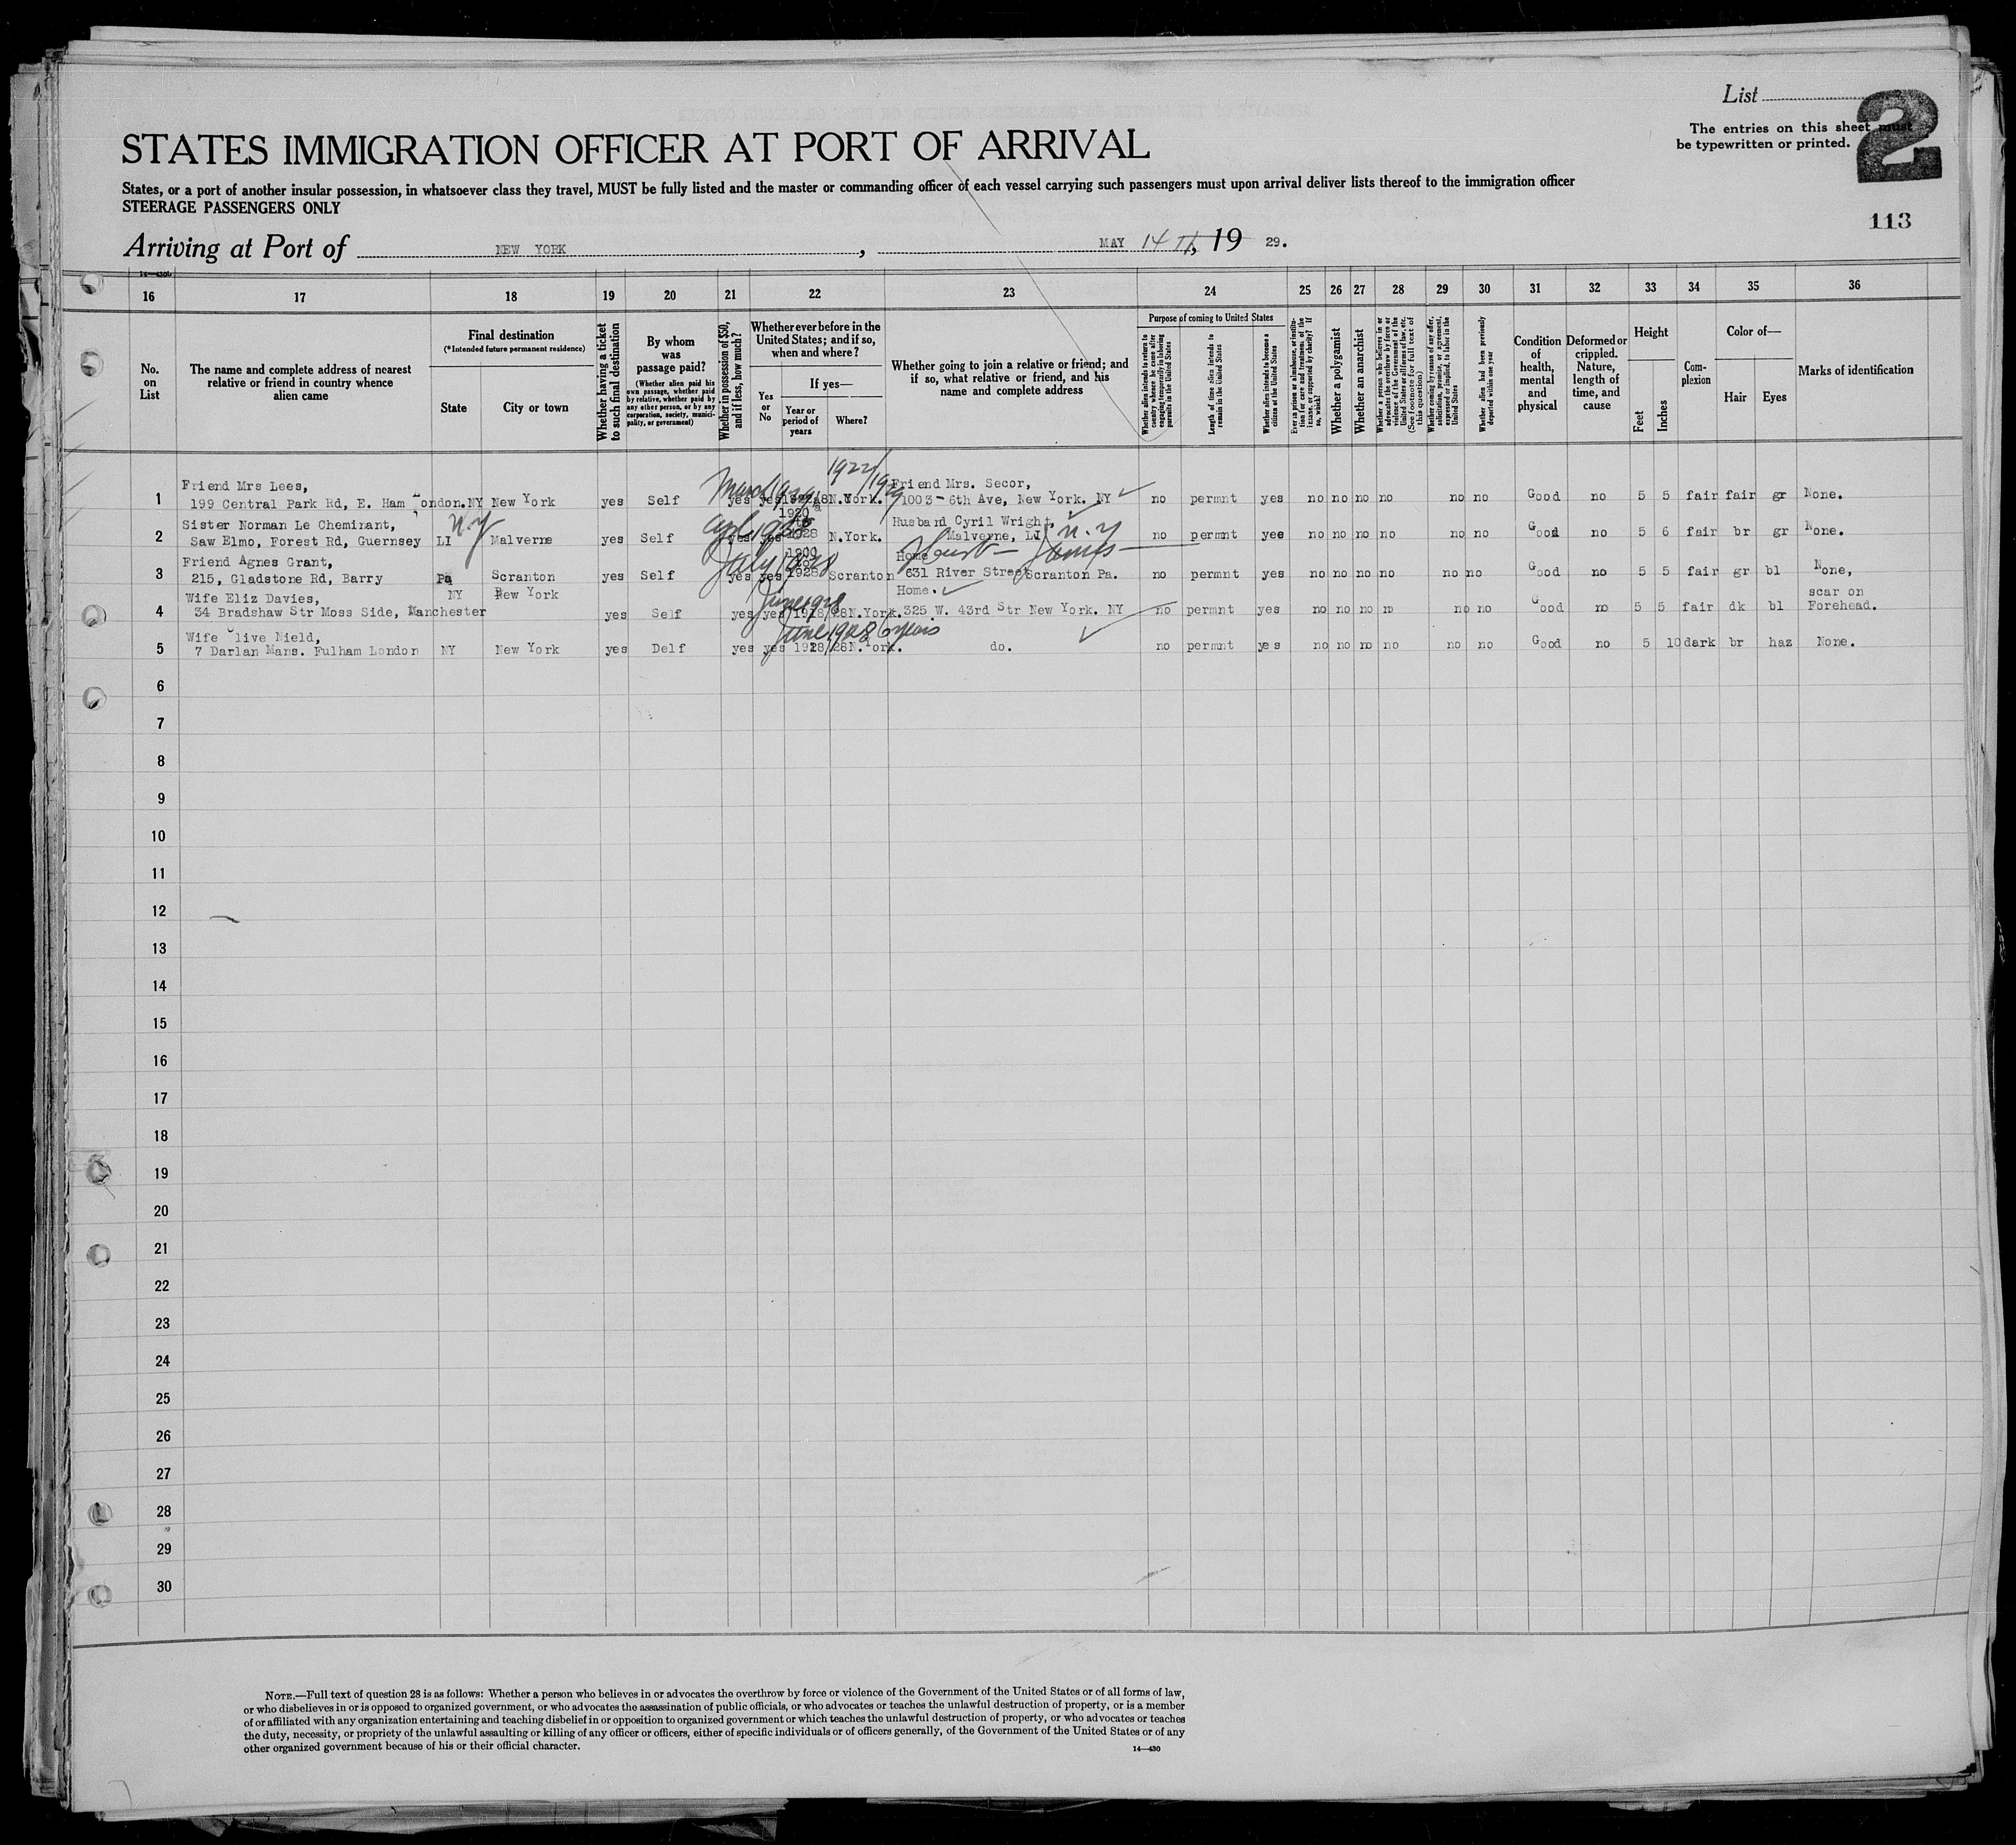 List
2
The entries on this sheet must
be typewritten or printed.
STATES IMMIGRATION OFFICER AT PORT OF ARRIVAL
States, or a port of another insular possession, in whatsoever class they travel, MUST be fully listed and the master or commanding officer of each vessel carrying such passengers must upon arrival deliver lists thereof to the immigration officer
STEERAGE PASSENGERS ONLY
113
Arriving at Port of NEW YORK, MAY 14 , 19 29.
16 17 18 19 20 21 22 23 24 25 26 27 28 29 30 31 32 33 34 35 36
No. on List
The name and complete address of nearest relative or friend in country whence alien came
Final destination
(*Intended future permanent residence)
State
City or town
Whether having a ticket to such final destination
By whom was passage paid?
(Whether alien paid his own passage, whether paid by relative, whether paid by any other person, or by any corporation, society, municipality, or government)
Whether in possession of $50, and if less, how much?
Whether ever before in the United States; and if so, when and where?
Yes or No
If yes—
Year or period of years
Where?
Whether going to join a relative or friend; and if so, what relative or friend, and his name and complete address
Purpose of coming to United States
Whether alien intends to return to country whence he came after engaging temporarily in laboring pursuits in the United States
Length of time alien intends to remain in the United States
Whether alien intends to become a citizen of the United States
Ever in prison or almshouse, or institution for care and treatment of the insane, or supported by charity? If so, which?
Whether a polygamist
Whether an anarchist
Whether a person who believes in or advocates the overthrow by force or violence of the Government of the United States or all forms of law, etc. (See footnote for full text of this question)
Whether coming by reason of any offer, solicitation, promise, or agreement, expressed or implied, to labor in the United States
Whether alien had been previously deported within one year
Condition of health, mental and physical
Deformed or crippled. Nature, length of time, and cause
Height
Feet
Inches
Complexion
Color of—
Hair
Eyes
Marks of identification
Friend Mrs Lees, 1922/1929 Friend Mrs. Secor,
1 199 Central Park Rd, E. Ham London. NY New York yes Self yes yes N.York. 1003-6th Ave, New York. NY no permnt yes no no no no no no Good no 5 5 fair fair gr None.
Sister Norman Le Cheminant, N.Y 1920 Husband Cyril Wright,
2 Saw Elmo, Forest Rd, Guernsey LI Malverne yes Self yes yes 1928 N.York. Malverne, LI N.Y no permnt yes no no no no no no Good no 5 6 fair br gr None.
Friend Agnes Grant, July 1928 1900 Home
3 215, Gladstone Rd, Barry Pa Scranton yes Self yes yes 1928 Scranton 631 River Street Scranton Pa. no permnt yes no no no no no no Good no 5 5 fair gr bl None,
Wife Eliz Davies, NY New York June 1928 Home. scar on
4 34 Bradshaw Str Moss Side, Manchester yes Self yes yes 1928/28 N.York. 325 W. 43rd Str New York. NY no permnt yes no no no no no no Good no 5 5 fair dk bl Forehead.
Wife Olive Nield, June 1928 6 years
5 7 Darlan Mans. Fulham London NY New York yes Delf yes yes 1928/28 N.York. do. no permnt yes no no no no no no Good no 5 10 dark br haz None.
6
7
8
9
10
11
12
13
14
15
16
17
18
19
20
21
22
23
24
25
26
27
28
29
30
NOTE.—Full text of question 28 is as follows: Whether a person who believes in or advocates the overthrow by force or violence of the Government of the United States or of all forms of law,
or who disbelieves in or is opposed to organized government, or who advocates the assassination of public officials, or who advocates or teaches the unlawful destruction of property, or is a member
of or affiliated with any organization entertaining and teaching disbelief in or opposition to organized government or which teaches the unlawful destruction of property, or who advocates or teaches
the duty, necessity, or propriety of the unlawful assaulting or killing of any officer or officers, either of specific individuals or of officers generally, of the Government of the United States or of any
other organized government because of his or their official character.
14—430